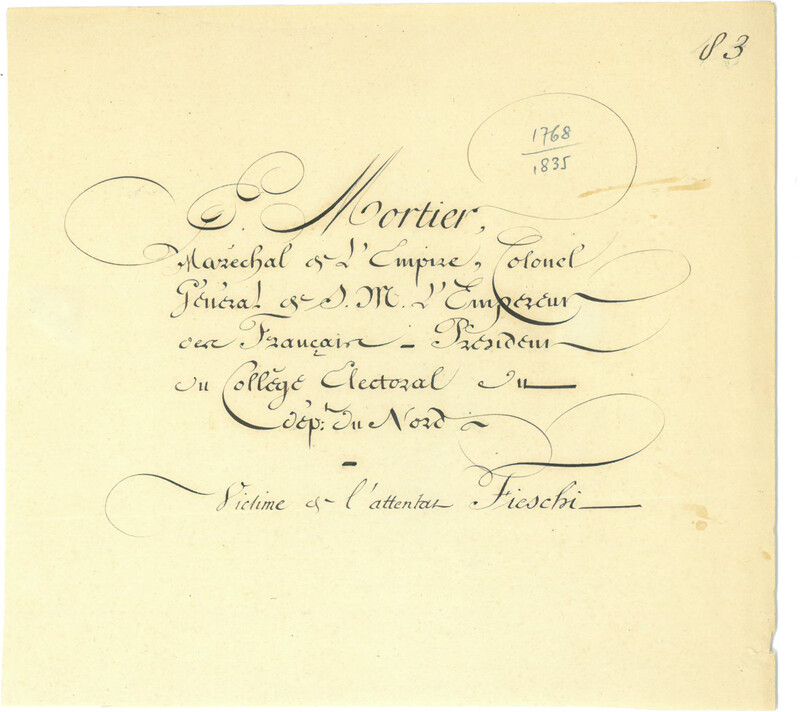 83
1768
1835
E. Mortier,
Maréchal de L'Empire, Colonel
Général de S. M. L'Empereur
des Français – Président
du Collège Electoral du
dép.t du Nord
–
Victime de l'attentat Fieschi